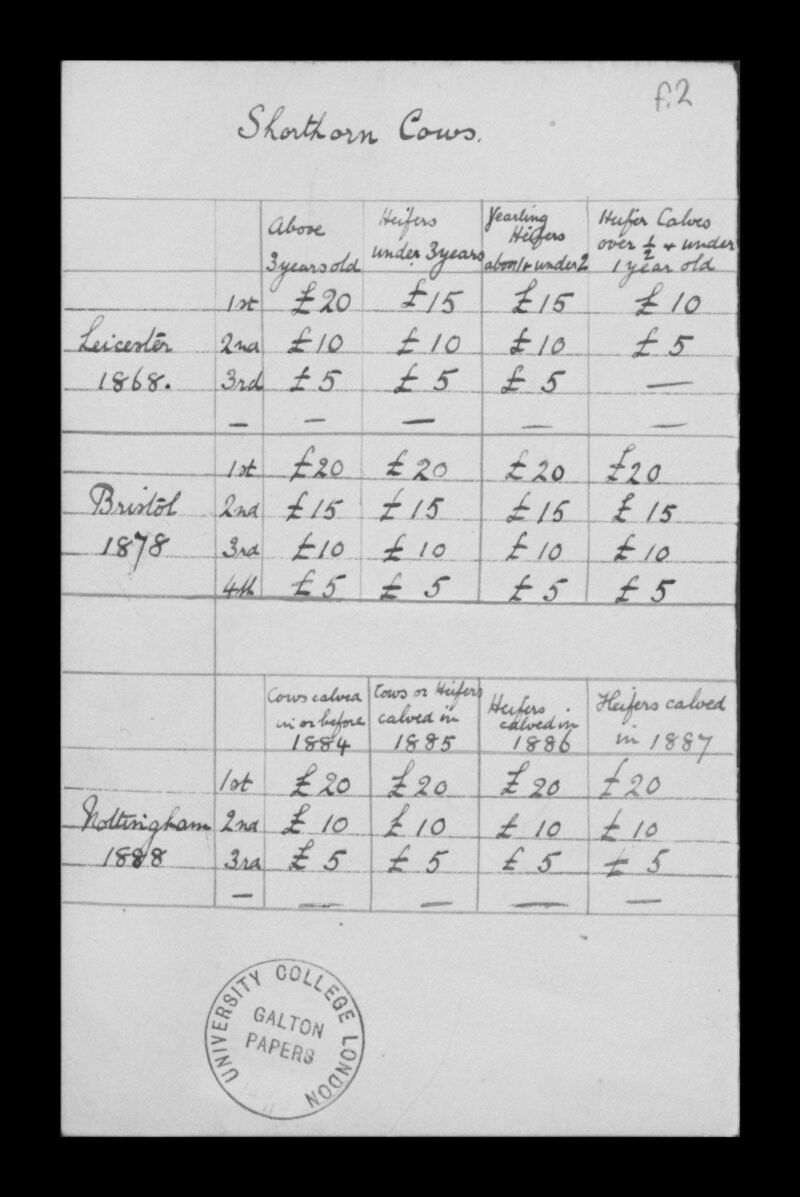 f.2
Shorthorn Cows.
Above Heifers Yearling Heifer Calves
3 years old under 3 years Heifers over ½ + under
above 1 + under 2 1 year old
1st £20 £15 £15 £10
Leicester 2nd £10 £10 £10 £5
1868. 3rd £5 £5 £5 —
— — — — —
1st £20 £20 £20 £20
Bristol 2nd £15 £15 £15 £15
1878 3rd £10 £10 £10 £10
4th £5 £5 £5 £5
Cows calved Cows or Heifers Heifers Heifers calved
in or before calved in calved in in 1887
1884 1885 1886
1st £20 £20 £20 £20
Nottingham 2nd £10 £10 £10 £10
1888 3rd £5 £5 £5 £5
— — — — —
UNIVERSITY COLLEGE LONDON
GALTON
PAPERS